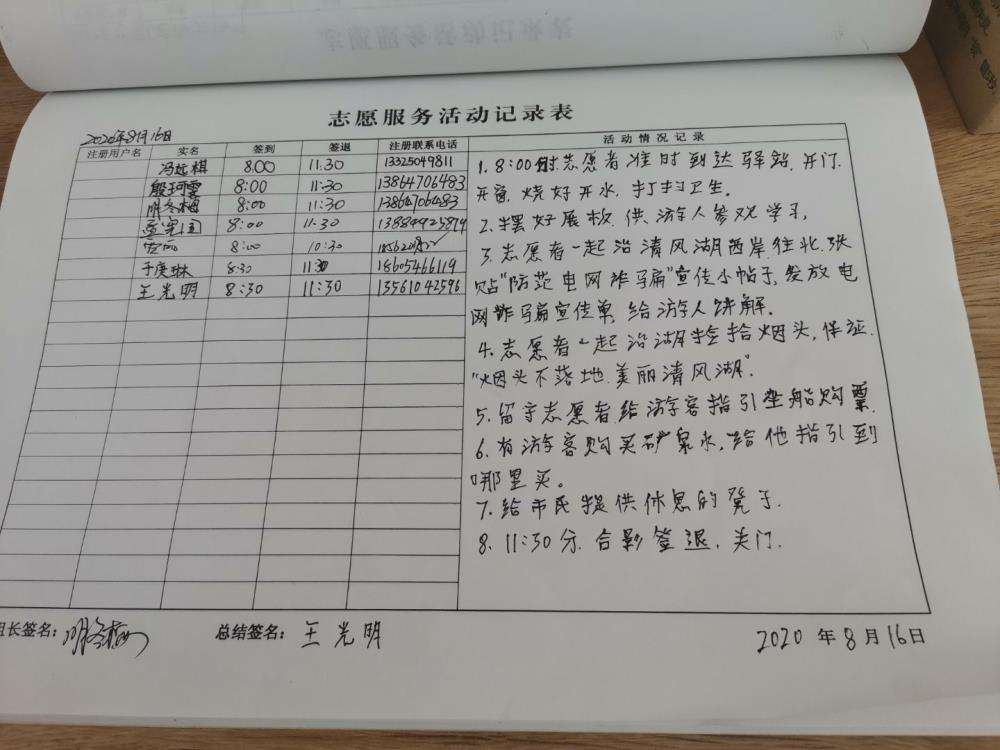 志愿服务活动记录表
2020年8月16日
注册用户名 实名 签到 签退 注册联系电话 活动情况记录
冯延棋 8:00 11:30 13325049811
殷珂雯 8:00 11:30 13864706483
明冬梅 8:00 11:30 13864706483
孟宪国 8:00 11:30
8:00 10:30
于庆琳 8:30 11:30 18605466119
王光明 8:30 11:30 13561042596
1. 8:00时志愿者准时到达驿站,开门.
开窗,烧好开水,打扫卫生。
2.摆好展板,供游人参观学习,
3.志愿者一起沿清风湖西岸往北,张
贴“防范电网诈骗”宣传小帖子,发放电
网诈骗宣传单,给游人讲解.
4.志愿者一起沿湖捡拾烟头,保证.
“烟头不落地.美丽清风湖”.
5.留守志愿者给游客指引坐船购票.
6.有游客购买矿泉水,给他指引到
哪里买。
7.给市民提供休息的凳子.
8. 11:30分.合影签退.关门.
组长签名:明冬梅 总结签名:王光明 2020年8月16日